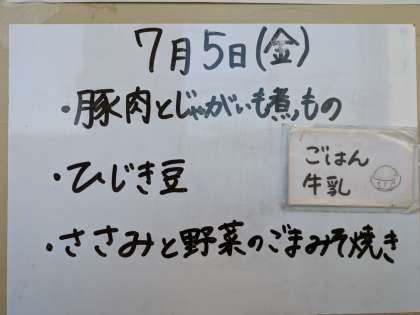 7月5日(金)
・豚肉とじゃがいも煮もの
・ひじき豆
・ささみと野菜のごまみそ焼き
ごはん
牛乳